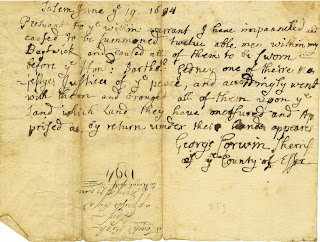 Salem June ye 19 1694
Pursuant to ye within warrant I have impannelled and
caused to be summoned twelve able men within my
Bartwick and caused all of them to be sworn
before ye Hon. Bartho Gedney one of theire
Justices of ye peace, and accordingly went
with them and brought all of them upon ye
land which land they have measured and Ap
prised as by return under their hands appears
George Corwin Sherif
of ye County of Essex
1694